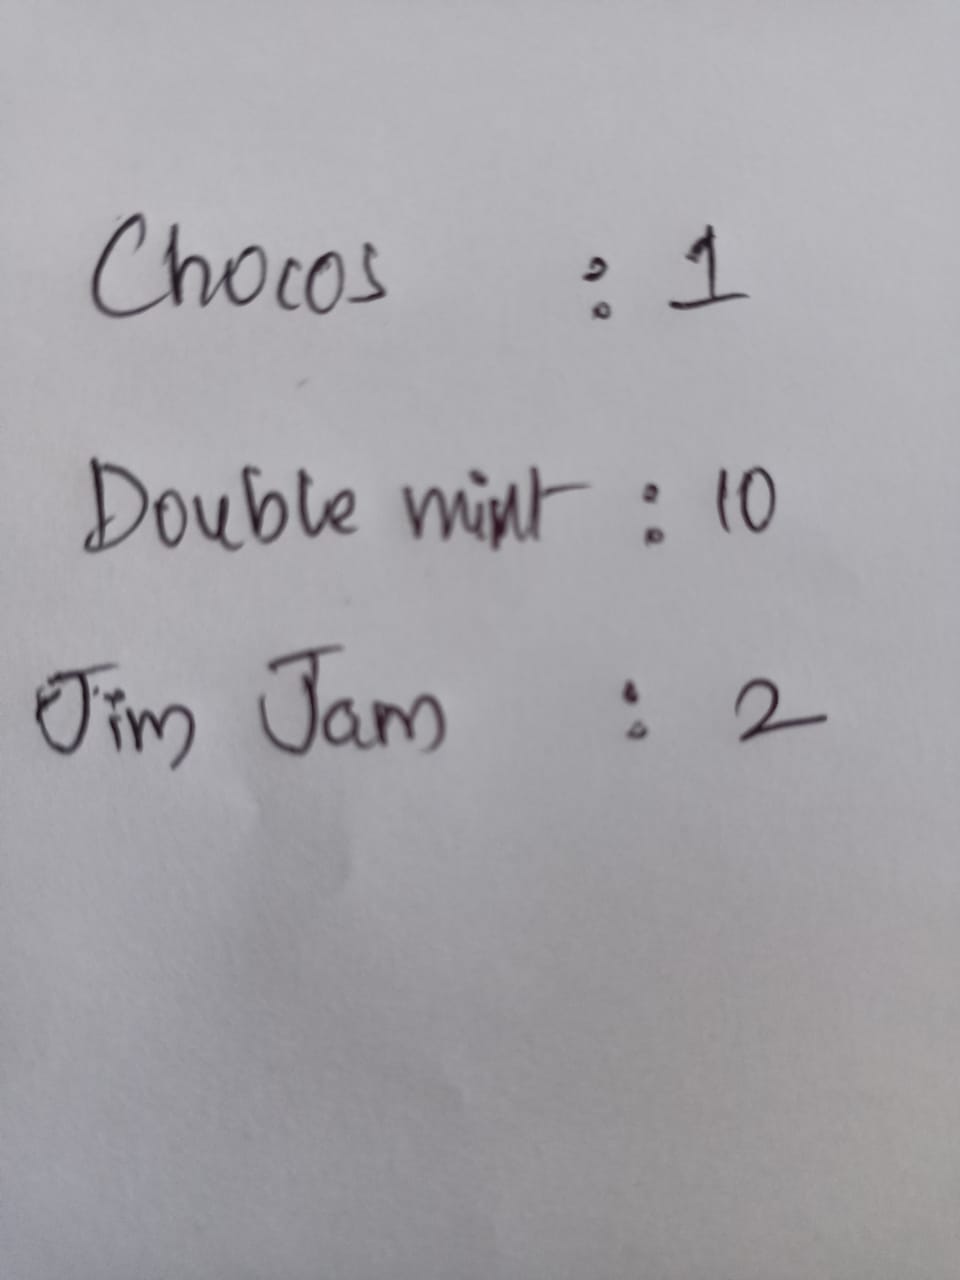 Chocos : 1
Double mint : 10
Jim Jam : 2